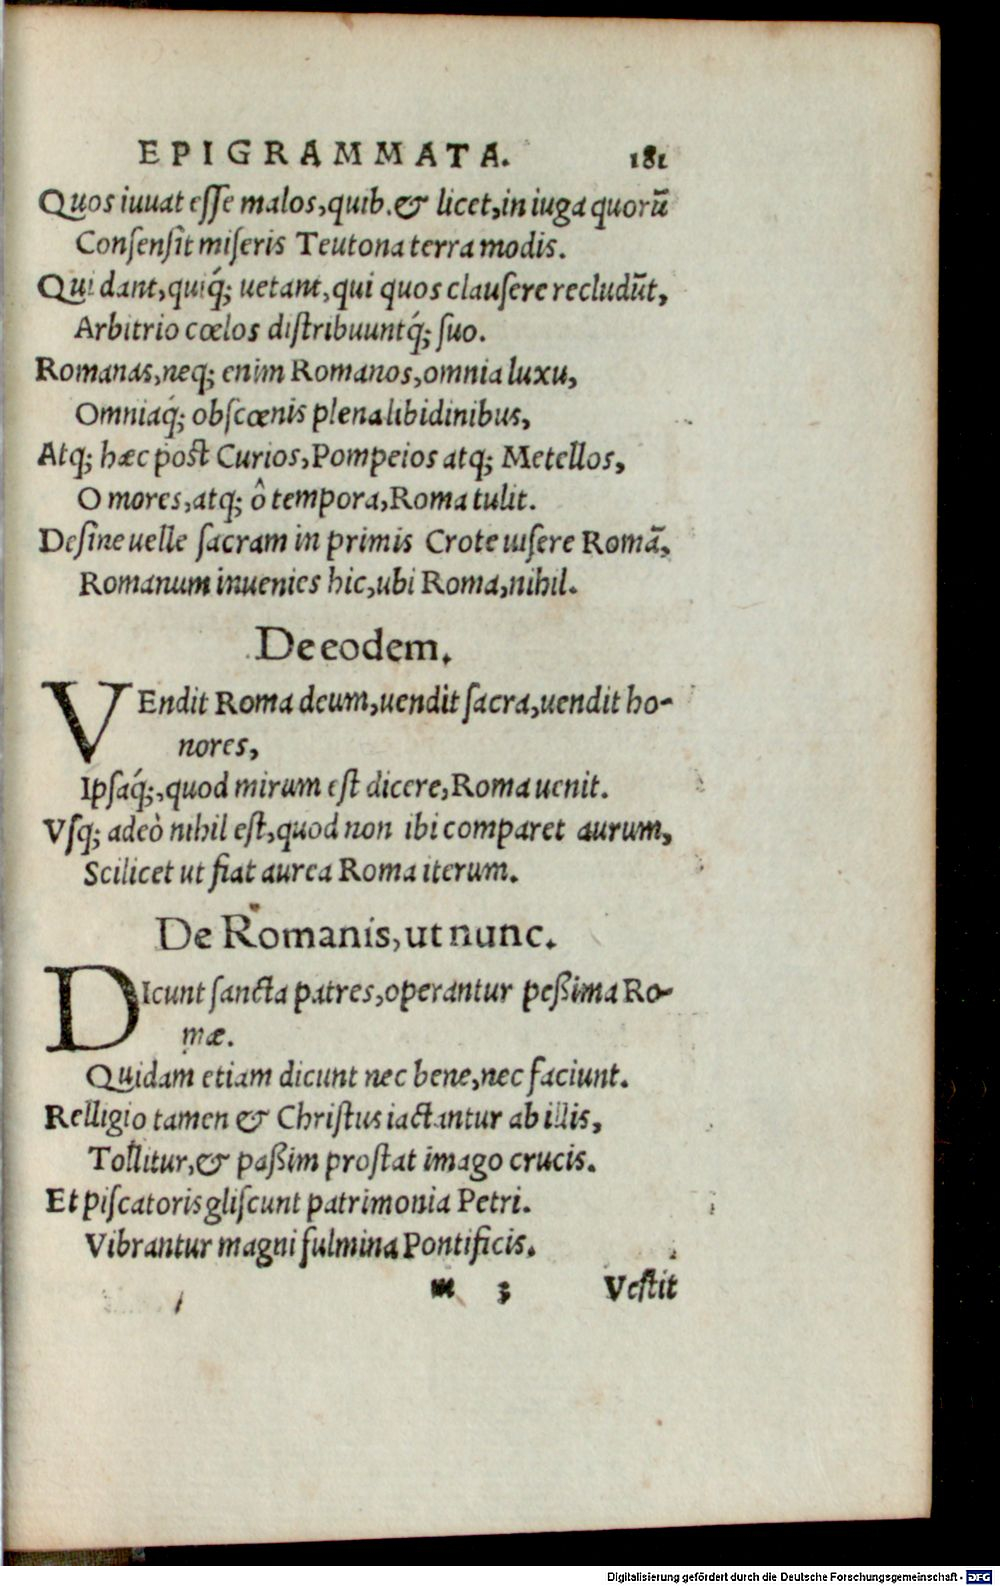 EPIGRAMMATA. 181
Quos iuuat esse malos, quib. & licet, in iuga quorũ
Consensit miseris Teutona terra modis.
Qui dant, quiq́; uetant, qui quos clausere recludũt,
Arbitrio cœlos distribuuntq́; suo.
Romanas, neq; enim Romanos, omnia luxu,
Omniaq́; obscœnis plena libidinibus,
Atq; hæc post Curios, Pompeios atq; Metellos,
O mores, atq; ô tempora, Roma tulit.
Desine uelle sacram in primis Crote uisere Romã,
Romanum inuenies hic, ubi Roma, nihil.
De eodem.
VEndit Roma deum, uendit sacra, uendit ho-
nores,
Ipsaq́;, quod mirum est dicere, Roma uenit.
Vsq; adeò nihil est, quod non ibi comparet aurum,
Scilicet ut fiat aurea Roma iterum.
De Romanis, ut nunc.
DIcunt sancta patres, operantur peßima Ro-
mæ.
Quidam etiam dicunt nec bene, nec faciunt.
Relligio tamen & Christus iactantur ab illis,
Tollitur, & paßim prostat imago crucis.
Et piscatoris gliscunt patrimonia Petri.
Vibrantur magni fulmina Pontificis.
m 3 Vestit
Digitalisierung gefördert durch die Deutsche Forschungsgemeinschaft - DFG